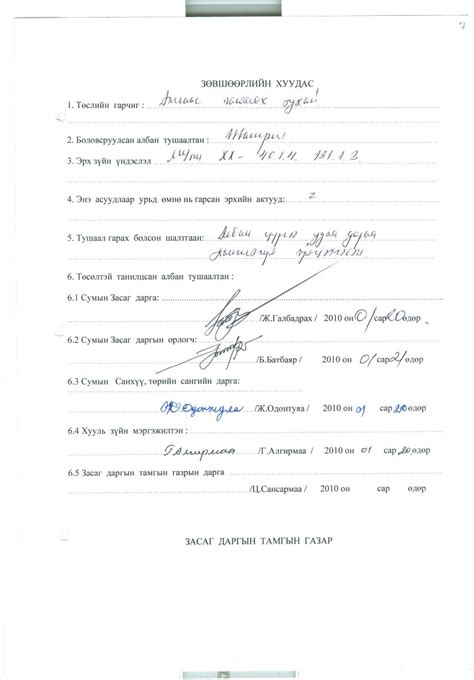 7
ЗӨВШӨӨРЛИЙН ХУУДАС
1. Төслийн гарчиг : Ажлаас чөлөөлөх тухай
2. Боловсруулсан албан тушаалтан :
3. Эрх зүйн үндэслэл ХХ- 40.1.4. 131.1.2
4. Энэ асуудлаар урьд өмнө нь гарсан эрхийн актууд: 2
5. Тушаал гарах болсон шалтгаан: Албан удаа дараа
6. Төсөлтэй танилцсан албан тушаалтан :
6.1 Сумын Засаг дарга:
/Ж.Галбадрах / 2010 он 01 сар 20 өдөр
6.2 Сумын Засаг даргын орлогч:
/Б.Батбаяр / 2010 он 01 сар 21 өдөр
6.3 Сумын Санхүү, төрийн сангийн дарга:
/Ж.Одонтуяа / 2010 он 01 сар 20 өдөр
6.4 Хууль зүйн мэргэжилтэн :
Г Алгирмаа /Г.Алгирмаа / 2010 он 01 сар 20 өдөр
6.5 Засаг даргын тамгын газрын дарга
/Ц.Сансармаа / 2010 он сар өдөр
ЗАСАГ ДАРГЫН ТАМГЫН ГАЗАР